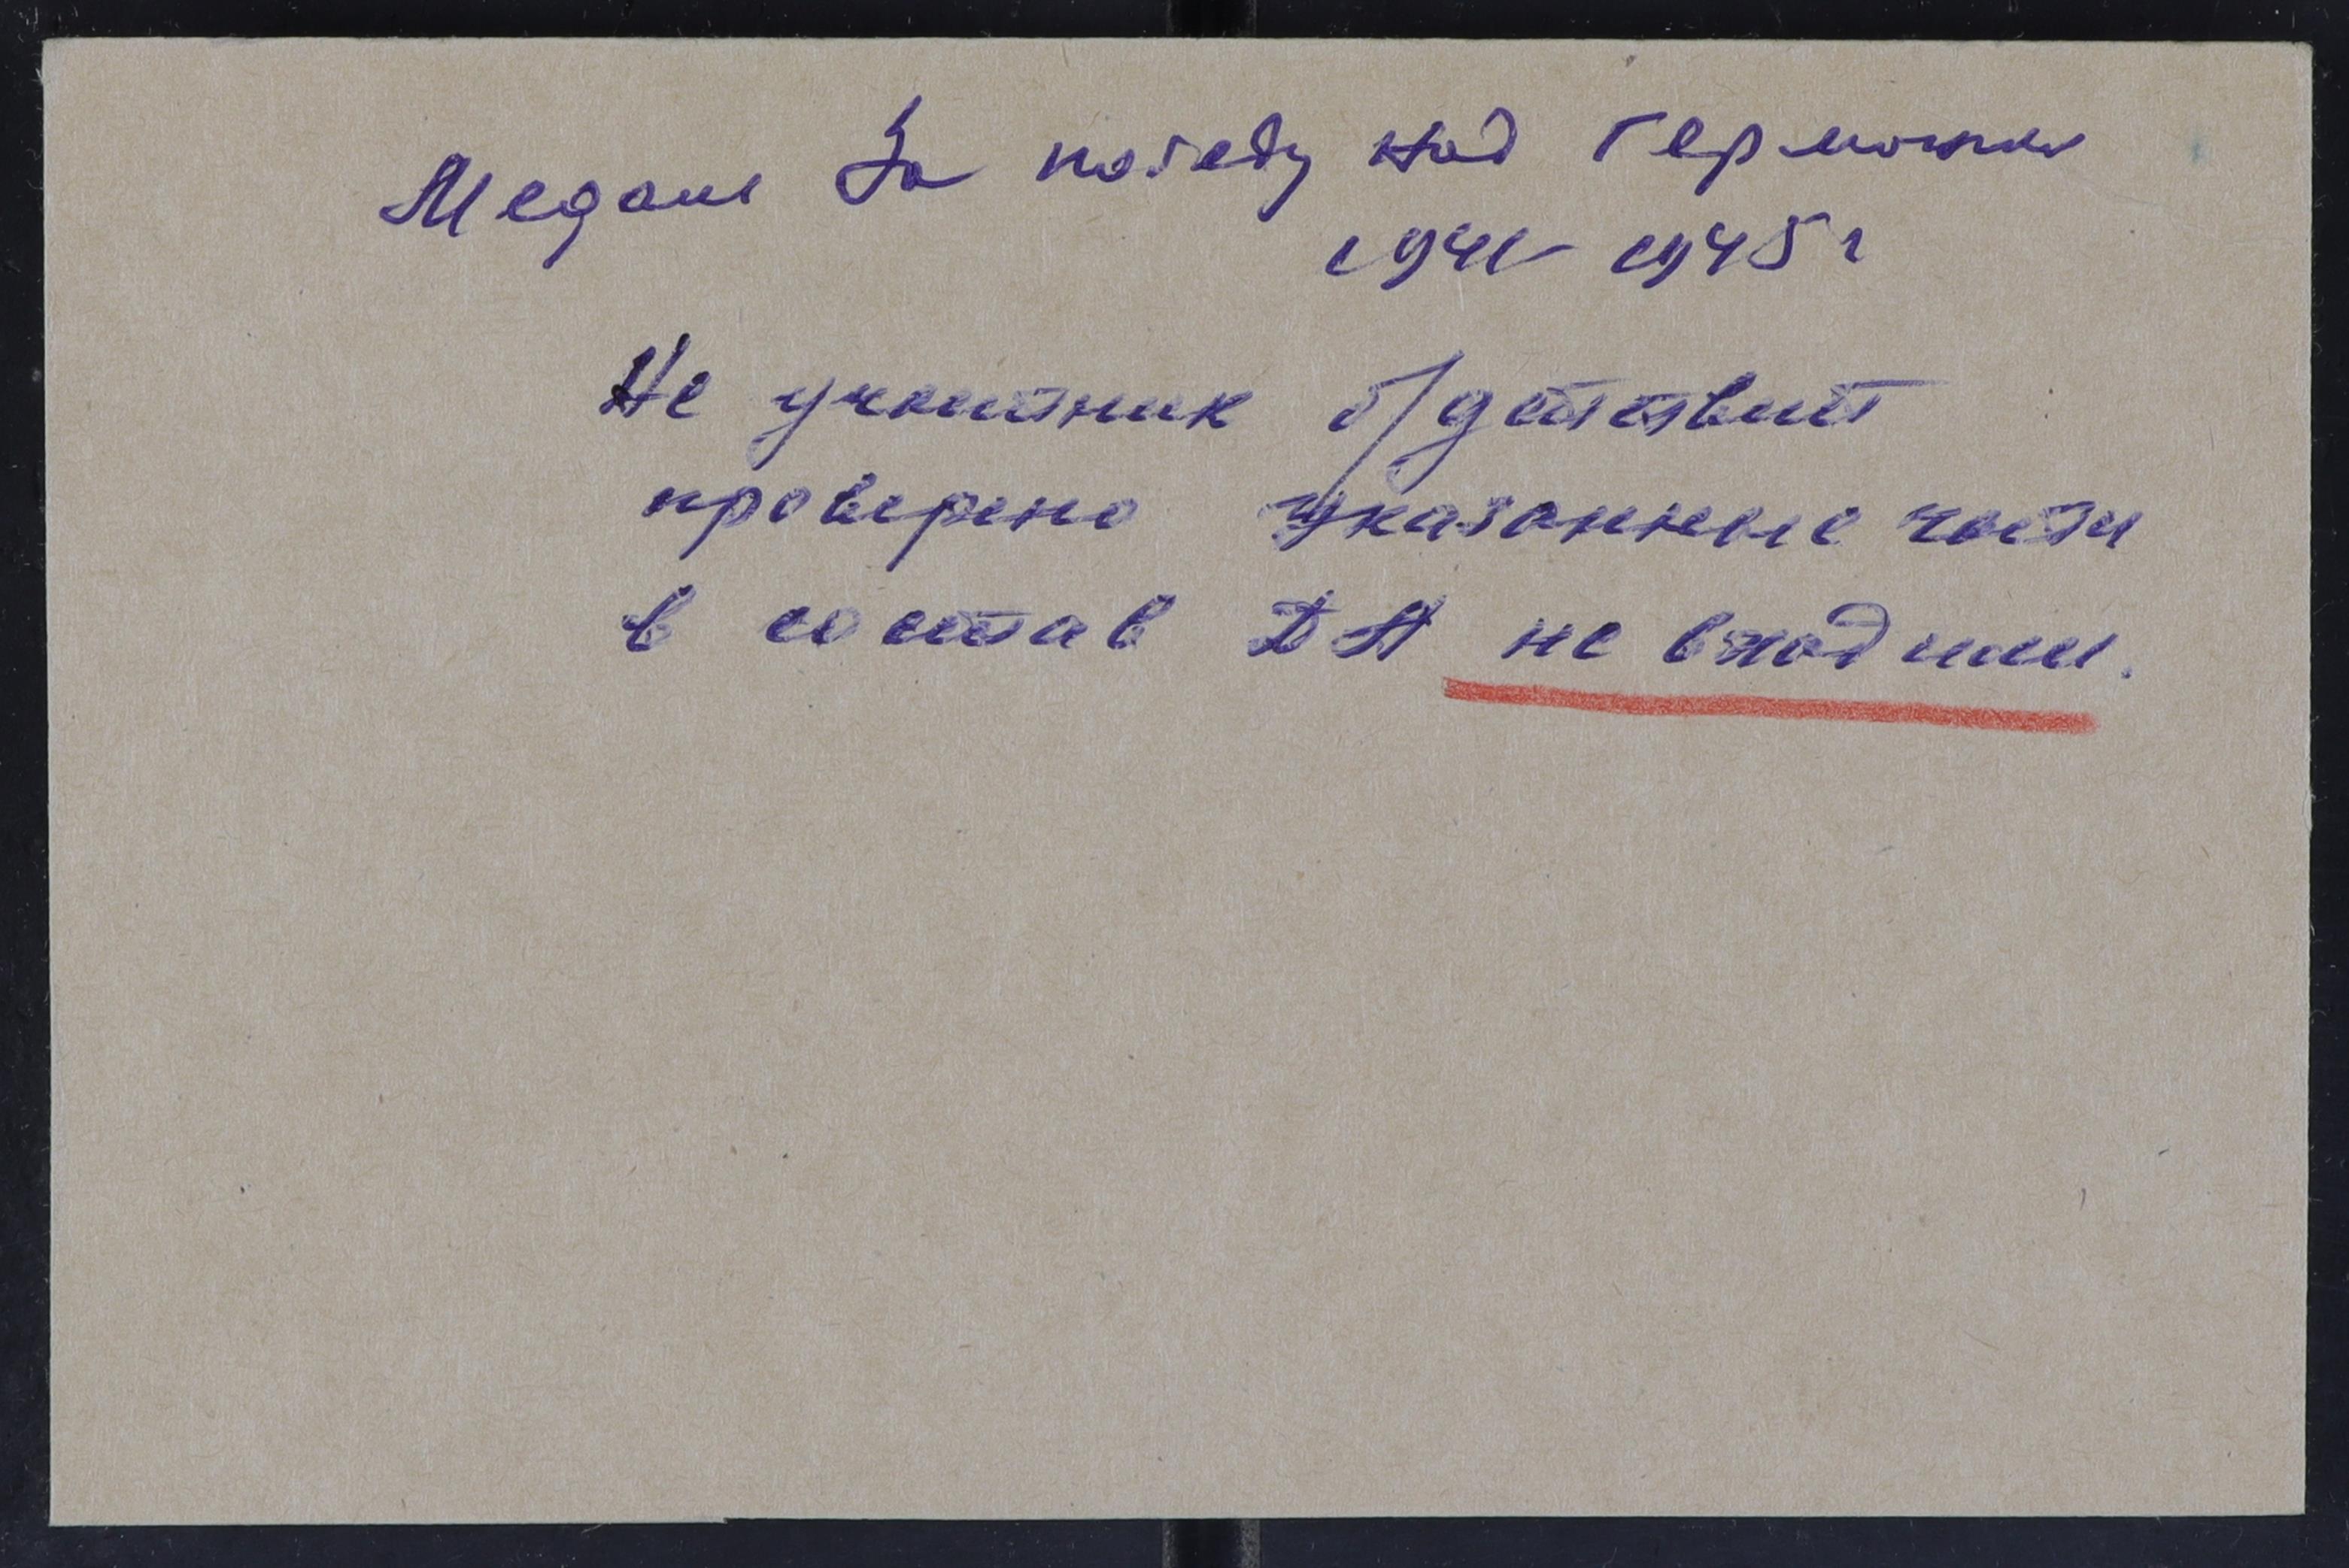 Медаль За победу над Германи
1941-1945 г
Не участник б/действий
проверено указанные части
в состав ДА не входили.